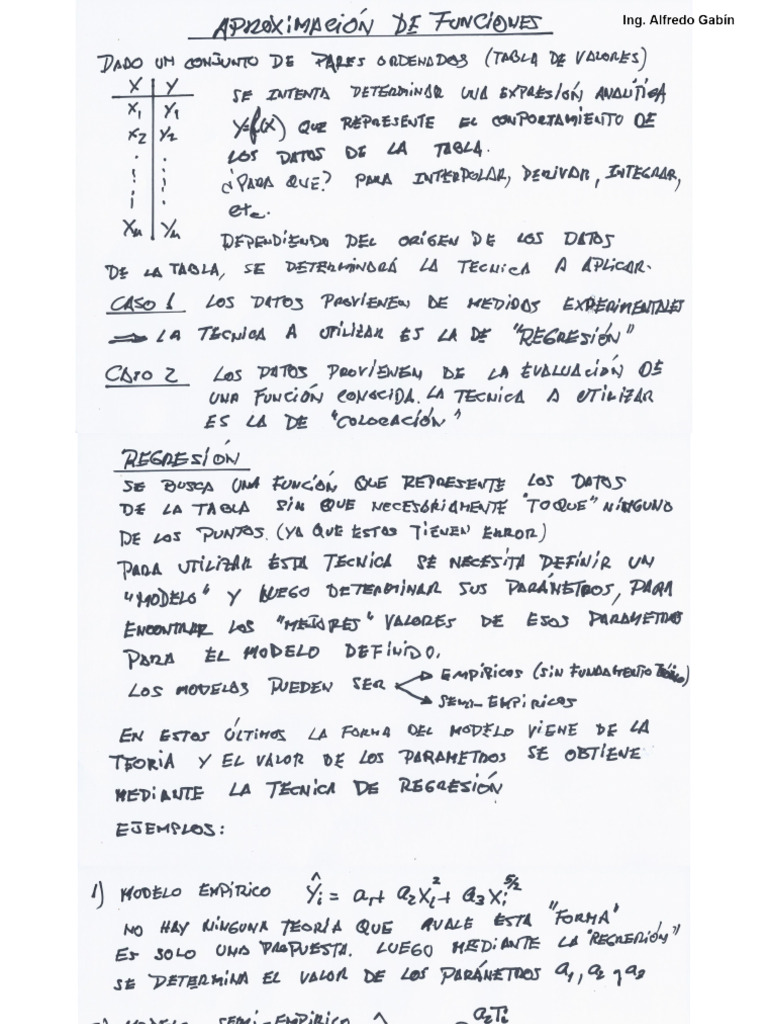 Ing. Alfredo Gabín
APROXIMACIÓN DE FUNCIONES
DADO UN CONJUNTO DE PARES ORDENADOS (TABLA DE VALORES)
X | Y
X1 | Y1
X2 | Y2
Xn | Yn
SE INTENTA DETERMINAR UNA EXPRESIÓN ANALÍTICA
Y=f(X) QUE REPRESENTE EL COMPORTAMIENTO DE
LOS DATOS DE LA TABLA.
¿PARA QUE? PARA INTERPOLAR, DERIVAR, INTEGRAR,
etc.
DEPENDIENDO DEL ORIGEN DE LOS DATOS
DE LA TABLA, SE DETERMINARÁ LA TECNICA A APLICAR.
CASO 1 LOS DATOS PROVIENEN DE MEDIDAS EXPERIMENTALES
⇒ LA TECNICA A UTILIZAR ES LA DE "REGRESIÓN"
CASO 2 LOS DATOS PROVIENEN DE LA EVALUACIÓN DE
UNA FUNCIÓN CONOCIDA. LA TECNICA A UTILIZAR
ES LA DE "COLOCACIÓN"
REGRESIÓN
SE BUSCA UNA FUNCIÓN QUE REPRESENTE LOS DATOS
DE LA TABLA SIN QUE NECESARIAMENTE "TOQUE" NINGUNO
DE LOS PUNTOS. (YA QUE ESTOS TIENEN ERROR)
PARA UTILIZAR ESTA TECNICA SE NECESITA DEFINIR UN
"MODELO" Y LUEGO DETERMINAR SUS PARÁMETROS, PARA
ENCONTRAR LOS "MEJORES" VALORES DE ESOS PARAMETROS
PARA EL MODELO DEFINIDO.
LOS MODELOS PUEDEN SER → EMPÍRICOS (SIN FUNDAMENTO TEÓRICO)
→ SEMI-EMPÍRICOS
EN ESTOS ÚLTIMOS LA FORMA DEL MODELO VIENE DE LA
TEORIA Y EL VALOR DE LOS PARAMETROS SE OBTIENE
MEDIANTE LA TECNICA DE REGRESIÓN
EJEMPLOS:
1) MODELO EMPÍRICO Ŷi = a1 + a2Xi^2 + a3Xi^5/2
NO HAY NINGUNA TEORÍA QUE AVALE ESTA "FORMA"
ES SOLO UNA PROPUESTA. LUEGO MEDIANTE LA "REGRESIÓN"
SE DETERMINA EL VALOR DE LOS PARÁMETROS a1, a2 y a3
MODELO SEMI-EMPÍRICO a2Ti